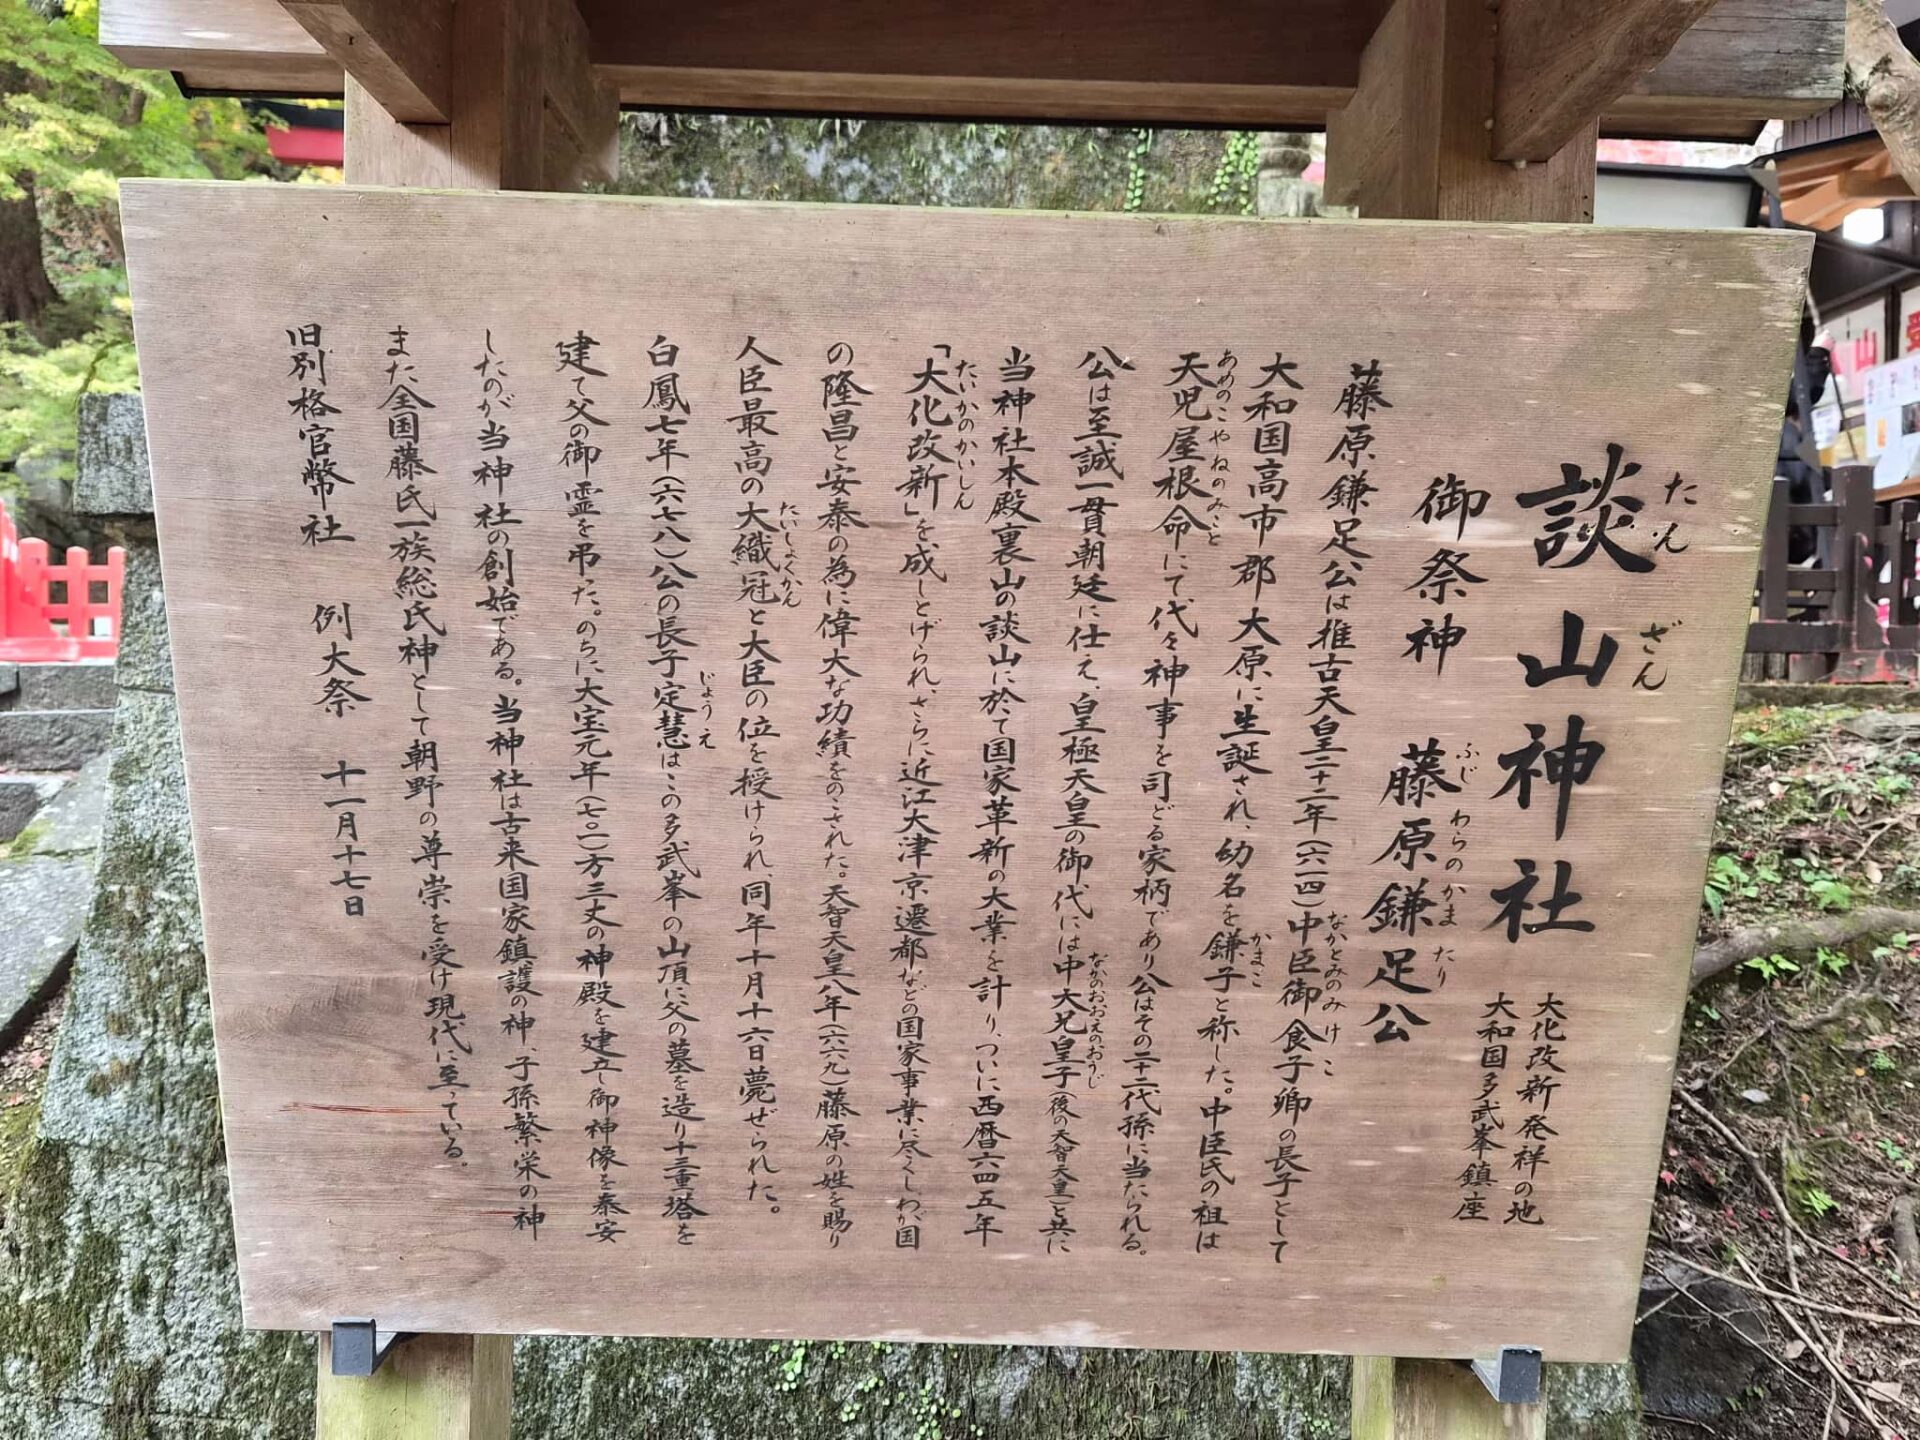 談山神社
たん ざん
大化改新発祥の地
大和国多武峯鎮座
御祭神 藤原鎌足公
ふじ わらのかま たり
藤原鎌足公は推古天皇二十二年(六一四)中臣御食子卿の長子として
なかとみのみけこ
大和国高市郡大原に生誕され、幼名を鎌子と称した。中臣氏の祖は
かまこ
天児屋根命にて代々神事を司どる家柄であり公はその二十二代孫に当たられる。
あめのこやねのみこと
公は至誠一貫朝廷に仕え、皇極天皇の御代には中大兄皇子(後の天智天皇)と共に
なかのおおえのおうじ
当神社本殿裏山の談山に於て国家革新の大業を計り、ついに西暦六四五年
「大化改新」を成しとげられ、さらに近江大津京遷都などの国家事業に尽くしわが国
たいかのかいしん
の隆昌と安泰の為に偉大な功績をのこされた。天智天皇八年(六六九)藤原の姓を賜り
人臣最高の大織冠と大臣の位を授けられ、同年十月十六日薨ぜられた。
たいしょくかん
白鳳七年(六七八)公の長子定慧はこの多武峯の山頂に父の墓を造り十三重塔を
じょうえ
建て父の御霊を弔た。のちに大宝元年(七〇一)方三丈の神殿を建立し御神像を泰安
したのが当神社の創始である。当神社は古来国家鎮護の神、子孫繁栄の神
また全国藤氏一族総氏神として朝野の尊崇を受け現代に至っている。
旧別格官幣社 例大祭 十一月十七日
山
受